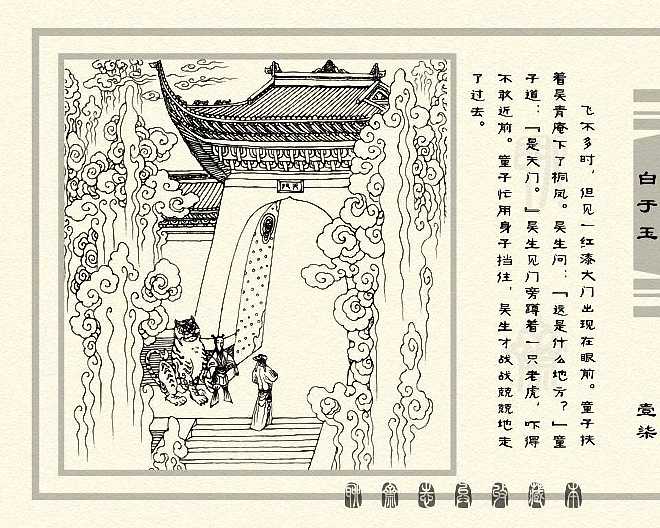 飞不多时，但见一红漆大门出现在眼前。童子扶
着吴青庵下了桐凤。吴生问：『这是什么地方？』童
子道：『是天门。』吴生见门旁蹲着一只老虎，吓得
不敢近前。童子忙用身子挡住，吴生才战战兢兢地走
了过去。
白于玉
壹柒
天门
聊斋志异收藏本